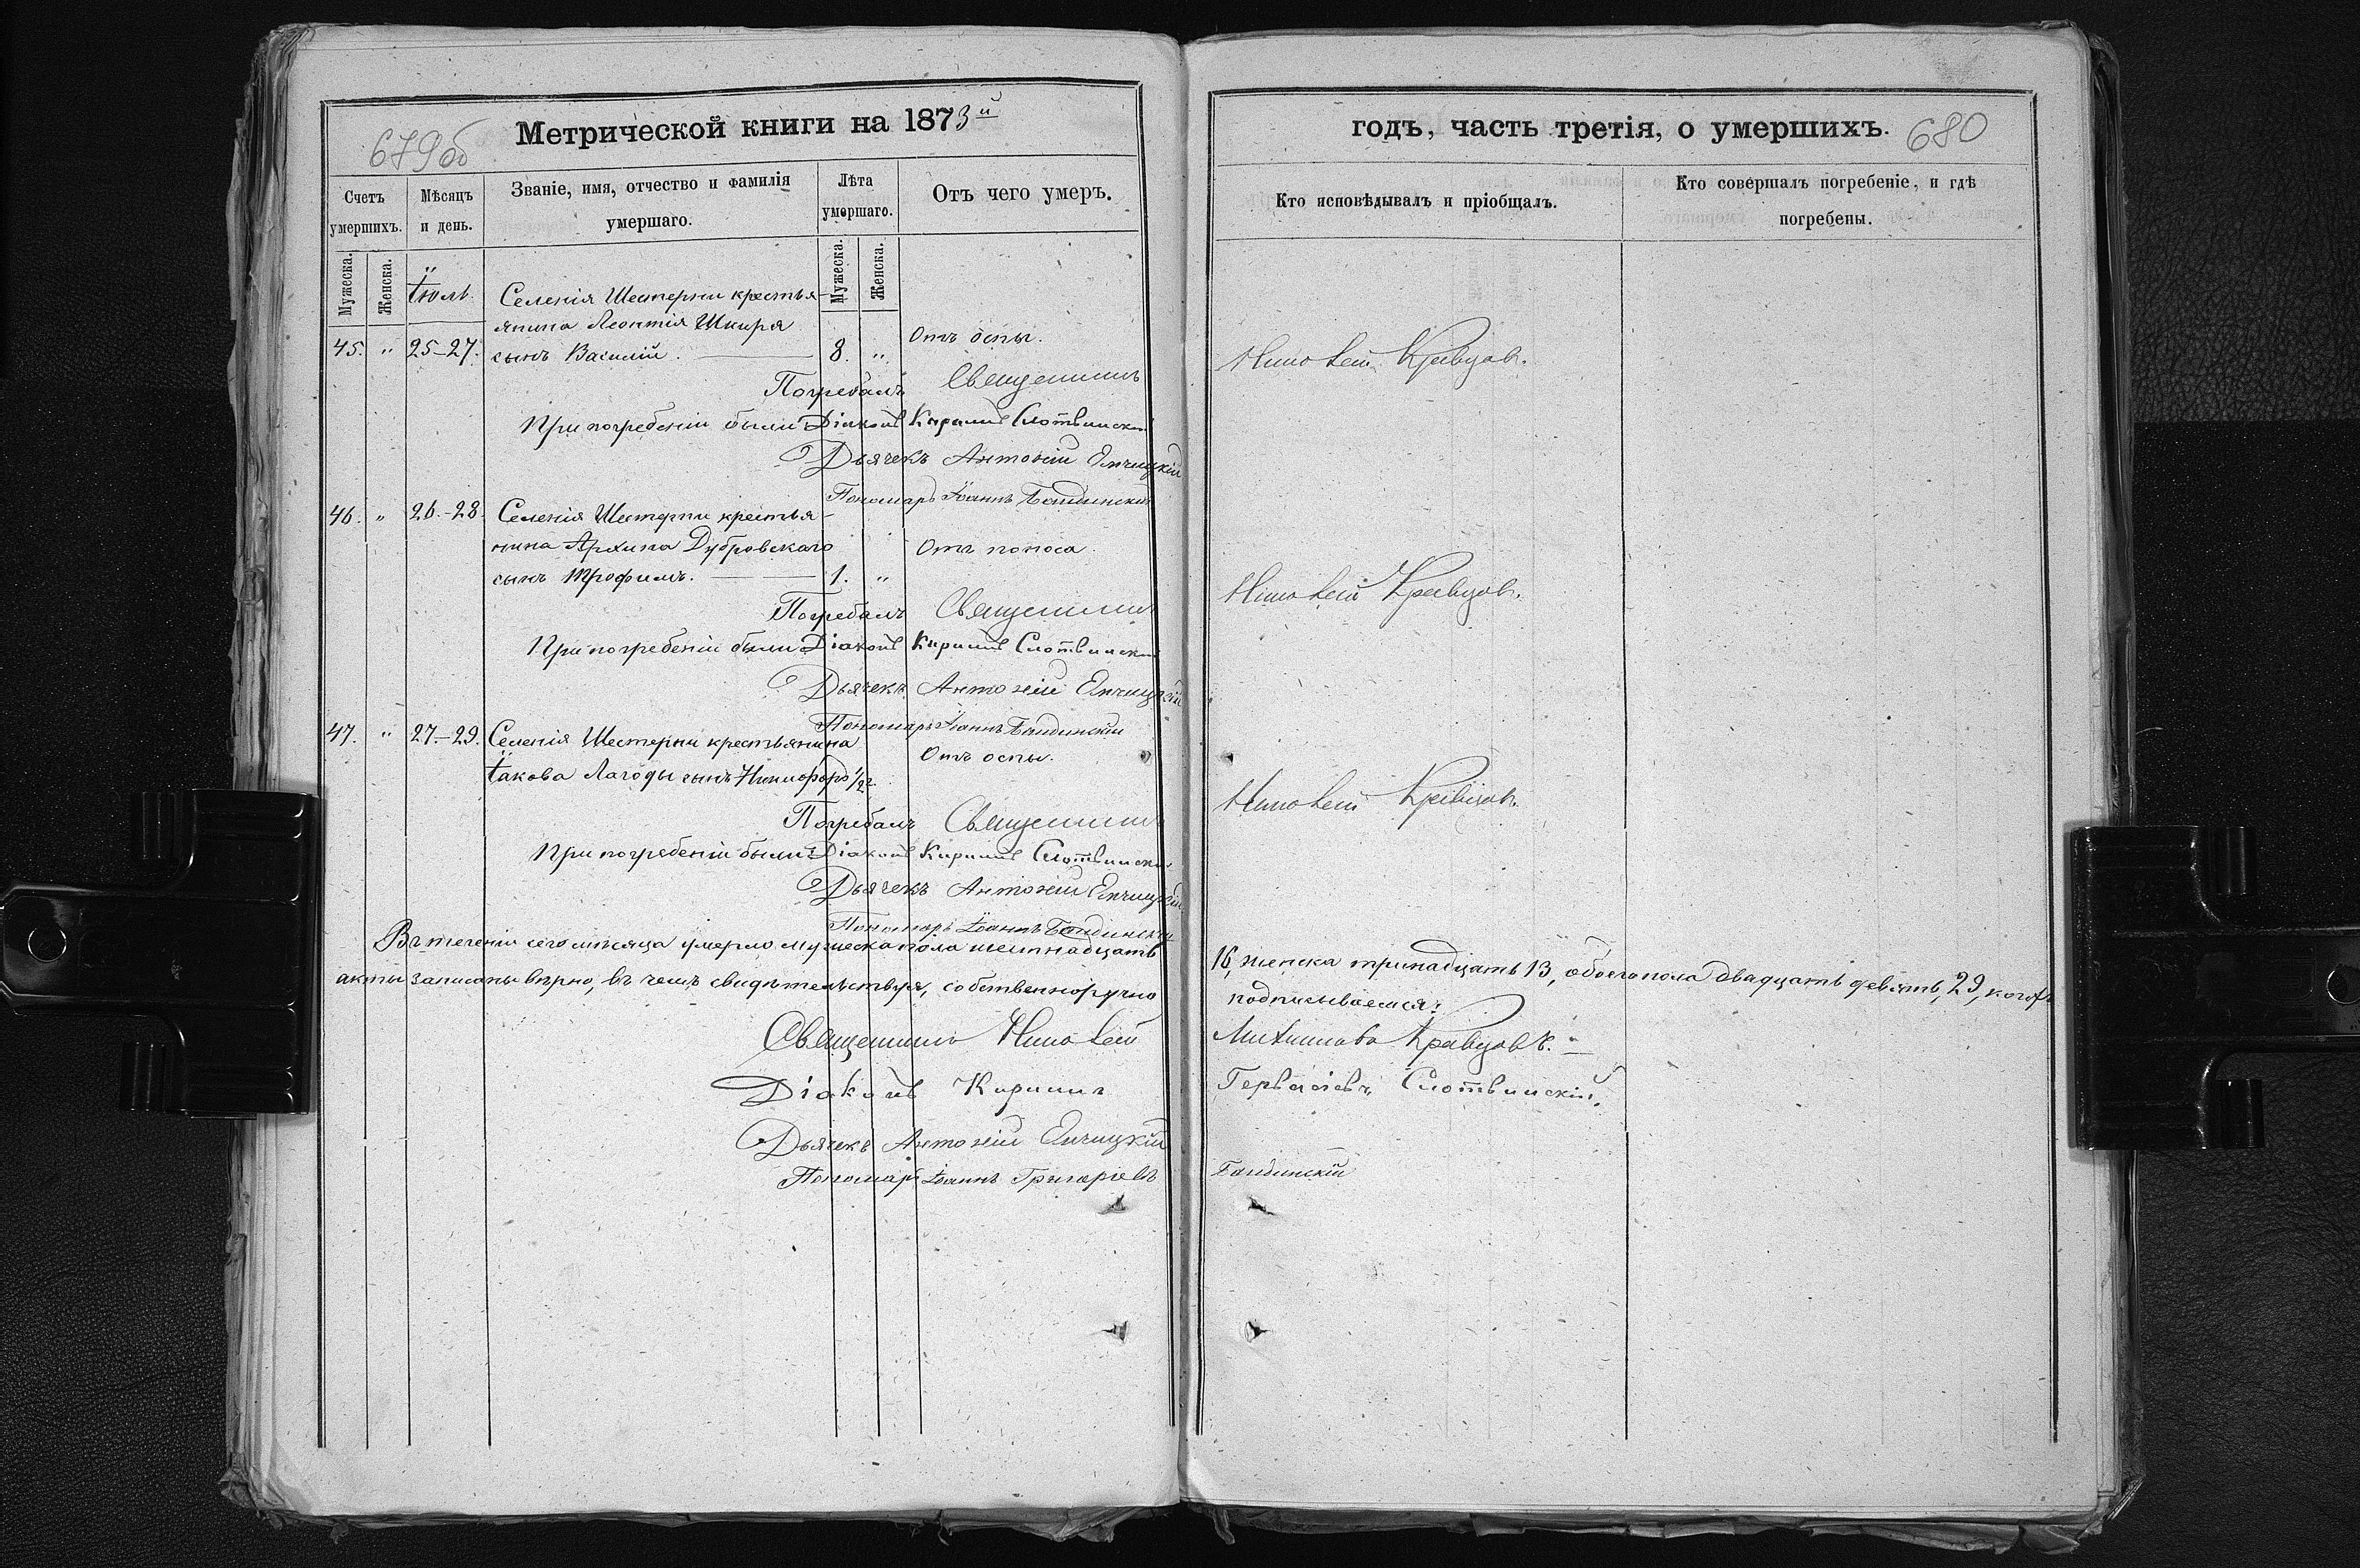 679об
Метрической книги на 1873й
Счетъ умершихъ.
Мѣсяцъ и день.
Званіе, имя, отчество и фамилія умершаго.
Лѣта умершаго.
Отъ чего умеръ.
Мужеска.
Женска.
Мужеска.
Женска.
Іюль.
Селенія Шестерни крестья-
янина Леонтія Шкиря
45. " 25-27. сынъ Василій. 8. " Отъ оспы.
Погребалъ Священникъ
При погребеніи были Діаконъ Кирилъ Слотвинскій
Дьячекъ Антоній Епчицкій
Пономарь Іоаннъ Бандинскій
46. " 26.-28. Селенія Шестерни крестья-
нина Архипа Дубровскаго Отъ поноса.
сынъ Трофимъ. 1. "
Погребалъ Священникъ
При погребеніи были Діаконъ Кирилъ Слотвинскій
Дьячекъ Антоній Епчицкій
Пономарь Іоаннъ Бандинскій
47. " 27.-29. Селенія Шестерни крестьянина
Іакова Лагоды сынъ Никифоръ 1/2 г. Отъ оспы.
Погребалъ Священникъ
При погребеніи были Діаконъ Кирилъ Слотвинскій
Дьячекъ Антоній Епчицкій
Пономарь Іоаннъ Бандинскій
Въ теченіи сего мѣсяца умерло мужеска пола шестнадцать
акты записаны вѣрно, въ чемъ свидѣтельствуя, собственноручно
Священникъ
Діаконъ Кирилъ
Дьячекъ Антоній Епчицкій
Пономарь Іоаннъ Григоріевъ
годъ, часть третія, о умершихъ.
680
Кто исповѣдывалъ и пріобщалъ.
Кто совершалъ погребеніе, и гдѣ погребены.
Кравцовъ.
Кравцовъ.
Кравцовъ.
16, женска тринадцать 13, обоего пола двадцать девять, 29, кои
подписываемся:
Михаиловъ Кравцовъ.
Гервасіевъ Слотвинскій.
Бандинскій